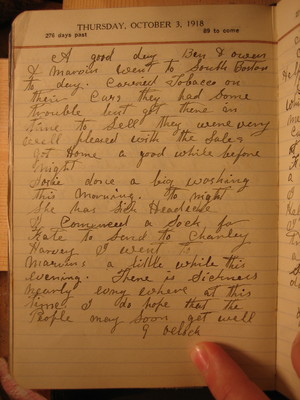 THURSDAY, OCTOBER 3, 1918
276 days past 89 to come
A good day Ben D Owen
& Marvin went to South Boston
to day. Carried Tobacco on
their Cars they had some
trouble but got there in
time to sell they were very
well pleased with the Sales
got Home a good while before
night
done a big washing
this Morning. to night
She has Sick Headache
I Comenced a Sock for
Kate to Send to Charley
Harvey I went to
Marvins a little while this
evening. There is Sickness
nearly evry where at this
time I do hope that the
People may soon get well
9 oclock